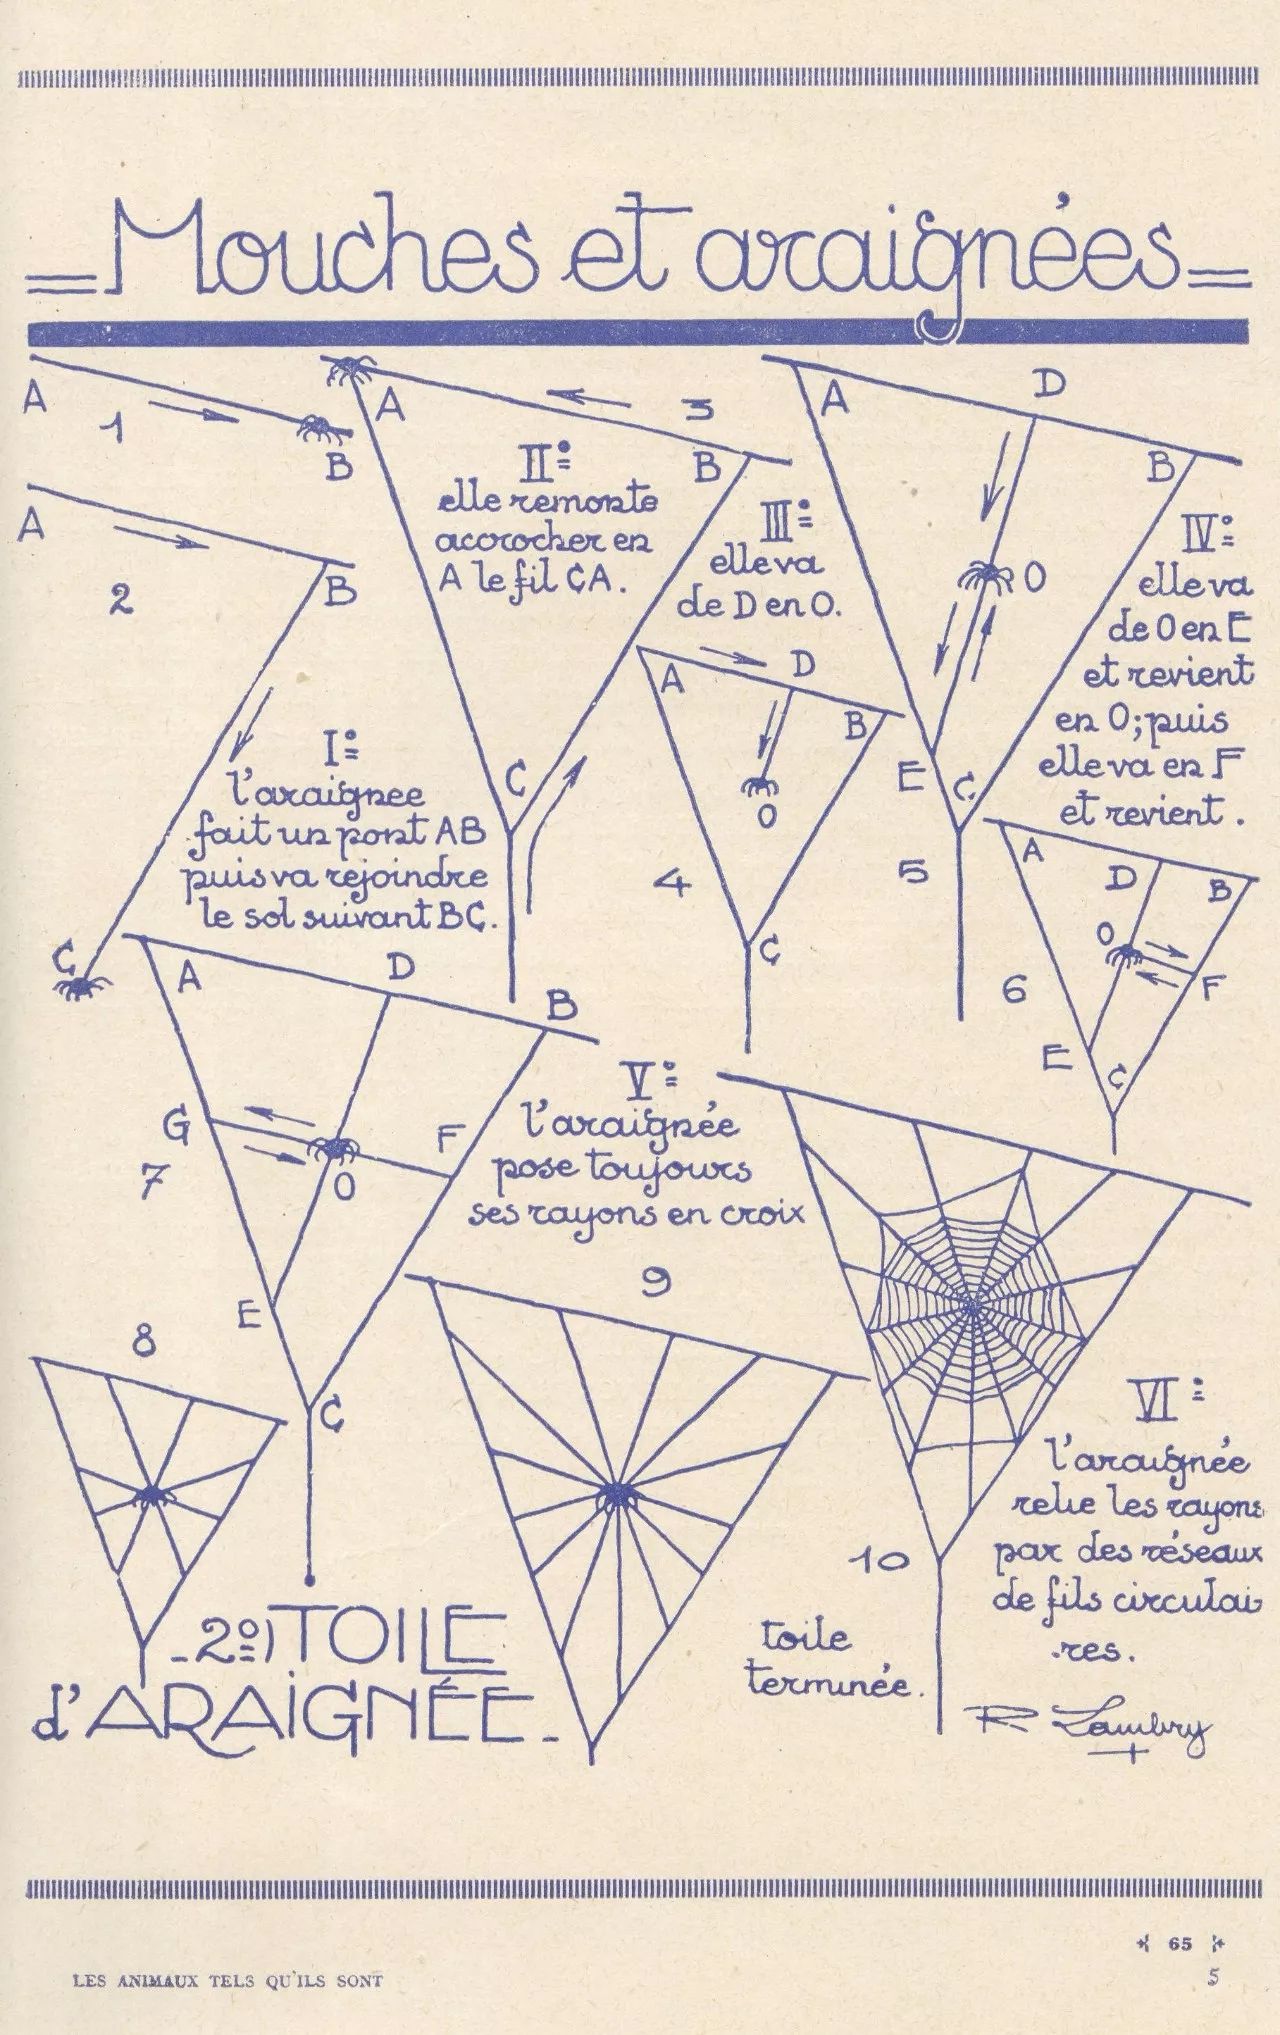 Mouches et araignées
A
1
B
A
2
B
C
I°
l'araignee
fait un pont AB
puis va rejoindre
le sol suivant BC.
A
3
B
C
II°
elle remonte
accrocher en
A le fil CA.
III°
elle va
de D en O.
A
D
B
O
C
4
A
D
B
O
E
C
5
IV°
elle va
de O en E
et revient
en O; puis
elle va en F
et revient.
A
D
B
O
F
E
C
6
A
D
B
G
F
O
E
C
7
V°
l'araignée
pose toujours
ses rayons en croix
8
9
10
toile
terminée.
VI°
l'araignée
relie les rayons
par des réseaux
de fils circulai
-res.
-2°) TOILE
d'ARAIGNÉE-
R Lambry
65
LES ANIMAUX TELS QU'ILS SONT
5